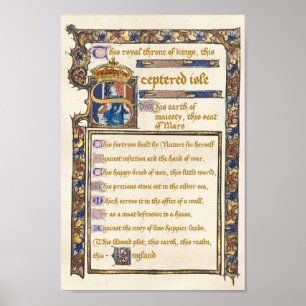 This royal throne of kings, this
Sceptered isle
This earth of
majesty, this seat
of Mars
This fortress built by Nature for herself
Against infection and the hand of war,
This happy breed of men, this little world,
This precious stone set in the silver sea,
Which serves it in the office of a wall,
Or as a moat defensive to a house,
Against the envy of less happier lands,
This blessed plot, this earth, this realm,
this England